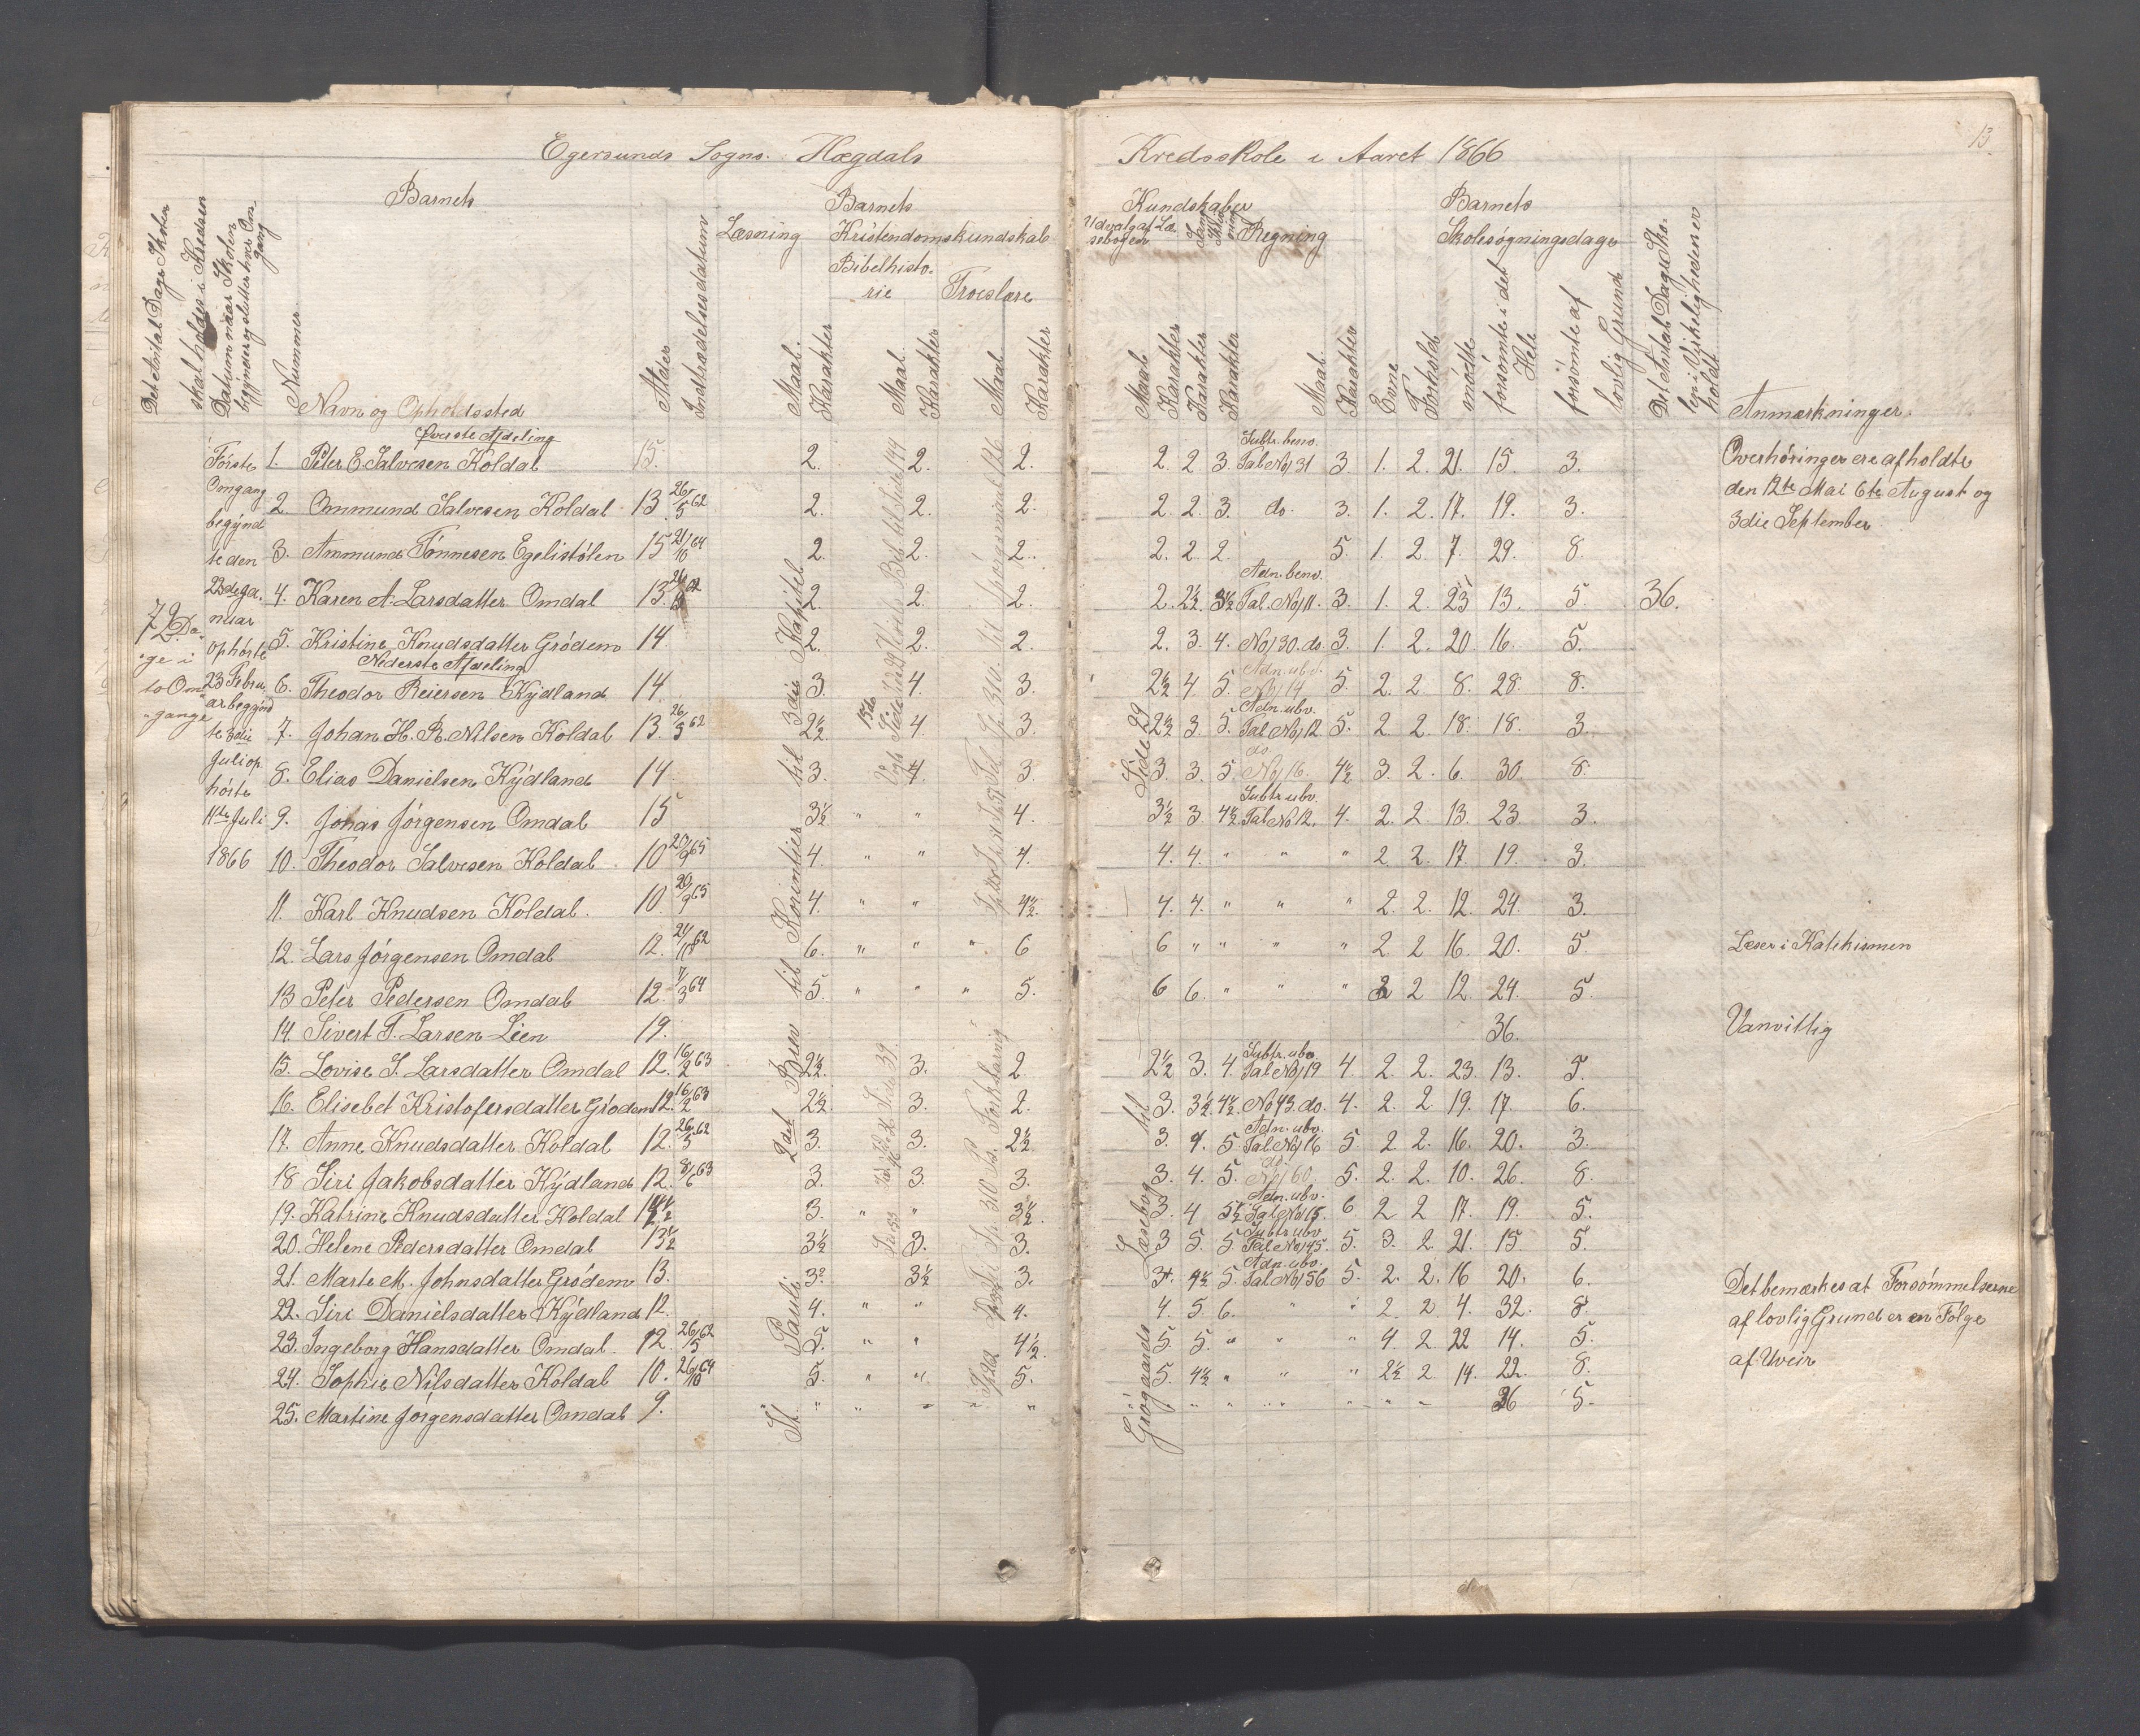 Egersunds Sogns Hægdals Kredsskole i Aaret 1866
13.
Det Antal Dage Skolen skal holdes i Kredsen
Datum naar Skolen begynder og slutter hver Omgang
Nummer
Barnets
Navn og Opholdssted
Alder
Indtrædelsesdatum
Barnets Kundskaber
Læsning
Maal.
Karakter
Kristendomskundskab
Bibelhistorie
Maal.
Karakter
Troeslære
Maal
Karakter
Udvalg af Læsebogen
Maal
Karakter
Sang
Karakter
Karakter
Regning
Maal.
Karakter
Evne
Forhold
Barnets Skolesøgningsdage
mødte
forsømte i det Hele
forsømte af lovlig Grund
Det Antal Dage Skolen i Virkeligheden er holdt
Anmærkninger.
72 Dage i to Omgange
Første Omgang begyndte den 23de Januar ophørte 23 Februar begyndte 3die Juli ophørte 11te Juli 1866
Øverste Afdeling
1. Peter E. Salvesen Koldal 15. 2. 2. 2. 2. 2. 3. Subtr. benv. Tal No 31 3. 1. 2. 21. 15. 3.
2. Ommund Salvesen Koldal 13 26/5 62 2. 2. 2. 2. 2. 3. do. 3. 1. 2. 17. 19. 3.
3. Ammund Tønnesen Egelistølen 15 21/10 64 2. 2. 2. 2. 2. 2. 5. 1. 2. 7. 29. 8.
4. Karen A. Larsdatter Omdal 13. 2. 2. 2. 2. 2½ 3½ Adn. benv. Tal. No 11. 3. 1. 2. 23 13. 5. 36.
5. Kristine Knudsdatter Grødem 14. 2. 2. 2. 2. 3. 4. No 30. do 3. 1 2. 20 16. 5.
Nederste Afdeling
6. Theodor Reiersen Kydland 14 3. 4. 3. 2½ 4. 5. Adn. ubv. No 14 5. 2. 2 8. 28. 8.
7. Johan H. R. Nilsen Koldal 13. 26/5 62 2½ 4 3. 2½ 3. 5. Adn. ubv. Tal No 12 5. 2 2 18. 18. 3.
8. Elias Danielsen Kydland 14. 3. 4. 3. 3. 3. 5. do. No 16. 4½ 3. 2. 6. 30. 8.
9. Jonas Jørgensen Omdal 15 3½ " " 4. 3½ 3. 4½ Subtr. ubv. Tal No 12. 4. 2. 2. 13. 23 3.
10. Theodor Salvesen Koldal 10 20/9 65 4. " " 4. 4. 4. " " " 2. 2. 17 19. 3.
11. Karl Knudsen Koldal. 10. 20/9 65 4. " " 4½. 4. 4. " " " 2. 2. 12. 24. 3.
12. Lars Jørgensen Omdal 12. 6. " " " 6 6 " " " " 2 2 16. 20. 5.
13 Peter Pedersen Omdal 12. 7/3 64 5. " " " 5. 6 6. " " " 2 2 12. 24. 5.
14. Sivert T. Larsen Lien 19. 36.
15. Lovise S. Larsdatter Omdal 12. 16/2 63 2½. 3. 2. 2½ 3. 4. Subtr. ubv. Tal No 19 4 2. 2. 23. 13. 5.
16. Elisebet Kristofersdatter Grødem 12. 16/2 63 2½. 3. 2. 3. 3½. 4½. No 43. do. 4. 2. 2 19. 17. 6.
17. Anne Knudsdatter Koldal 12. 26/5 62 3. 3. 2½ 3. 4. 5 Adn. ubv. Tal No 16 5 2. 2. 16. 20. 3.
18 Siri Jakobsdatter Kydland 12. 8/6 63 3. 3. 3. 3. 4. 5. do. No 60. 5. 2. 2. 10. 26. 8.
19. Katrine Knudsdatter Koldal 3. " " 3½. 3. 4 5½ Adn. ubv. Tal No 15. 6 2 2 17. 19. 5.
20. Helene Pedersdatter Omdal 13½ 3½ 3. 3. 3 5. 5. Subtr. ubv Tal No 45. 5. 3. 2. 21. 15. 5.
21. Marte M. Johnsdatter Grødem 13. 3. 3½ 3. 3. 4½. 5. Adn. ubv. Tal No 56 5. 2. 2. 16 20. 6.
22. Siri Danielsdatter Kydland 12. 4. " " 4. 4. 5 6. " " 2. 2 4. 32. 8.
23. Ingeborg Hansdatter Omdal. 12. 26/5 62 5. " " 4½. 5. 5. " " " 4. 2 22 14. 5.
24. Sophie Nilsdatter Koldal 10. 26/10 64 5. " " 5. 5. 4½ " " " 2½ 2. 14. 22. 8.
25. Martine Jørgensdatter Omdal 9. " " " " " " " " " " " 36 5.
St. Pauli 2det Brev til Korintier til 3die Kapitel
Vogts Side
Forklaring
Grøgaards Læsebog til Side 29
Overhøringer ere afholdte den 12te Mai 6te August og 3die September
Læser i Katekismen
Vanvittig
Det bemærkes at Forsømmelserne af lovlig Grund er en Følge af Uveir